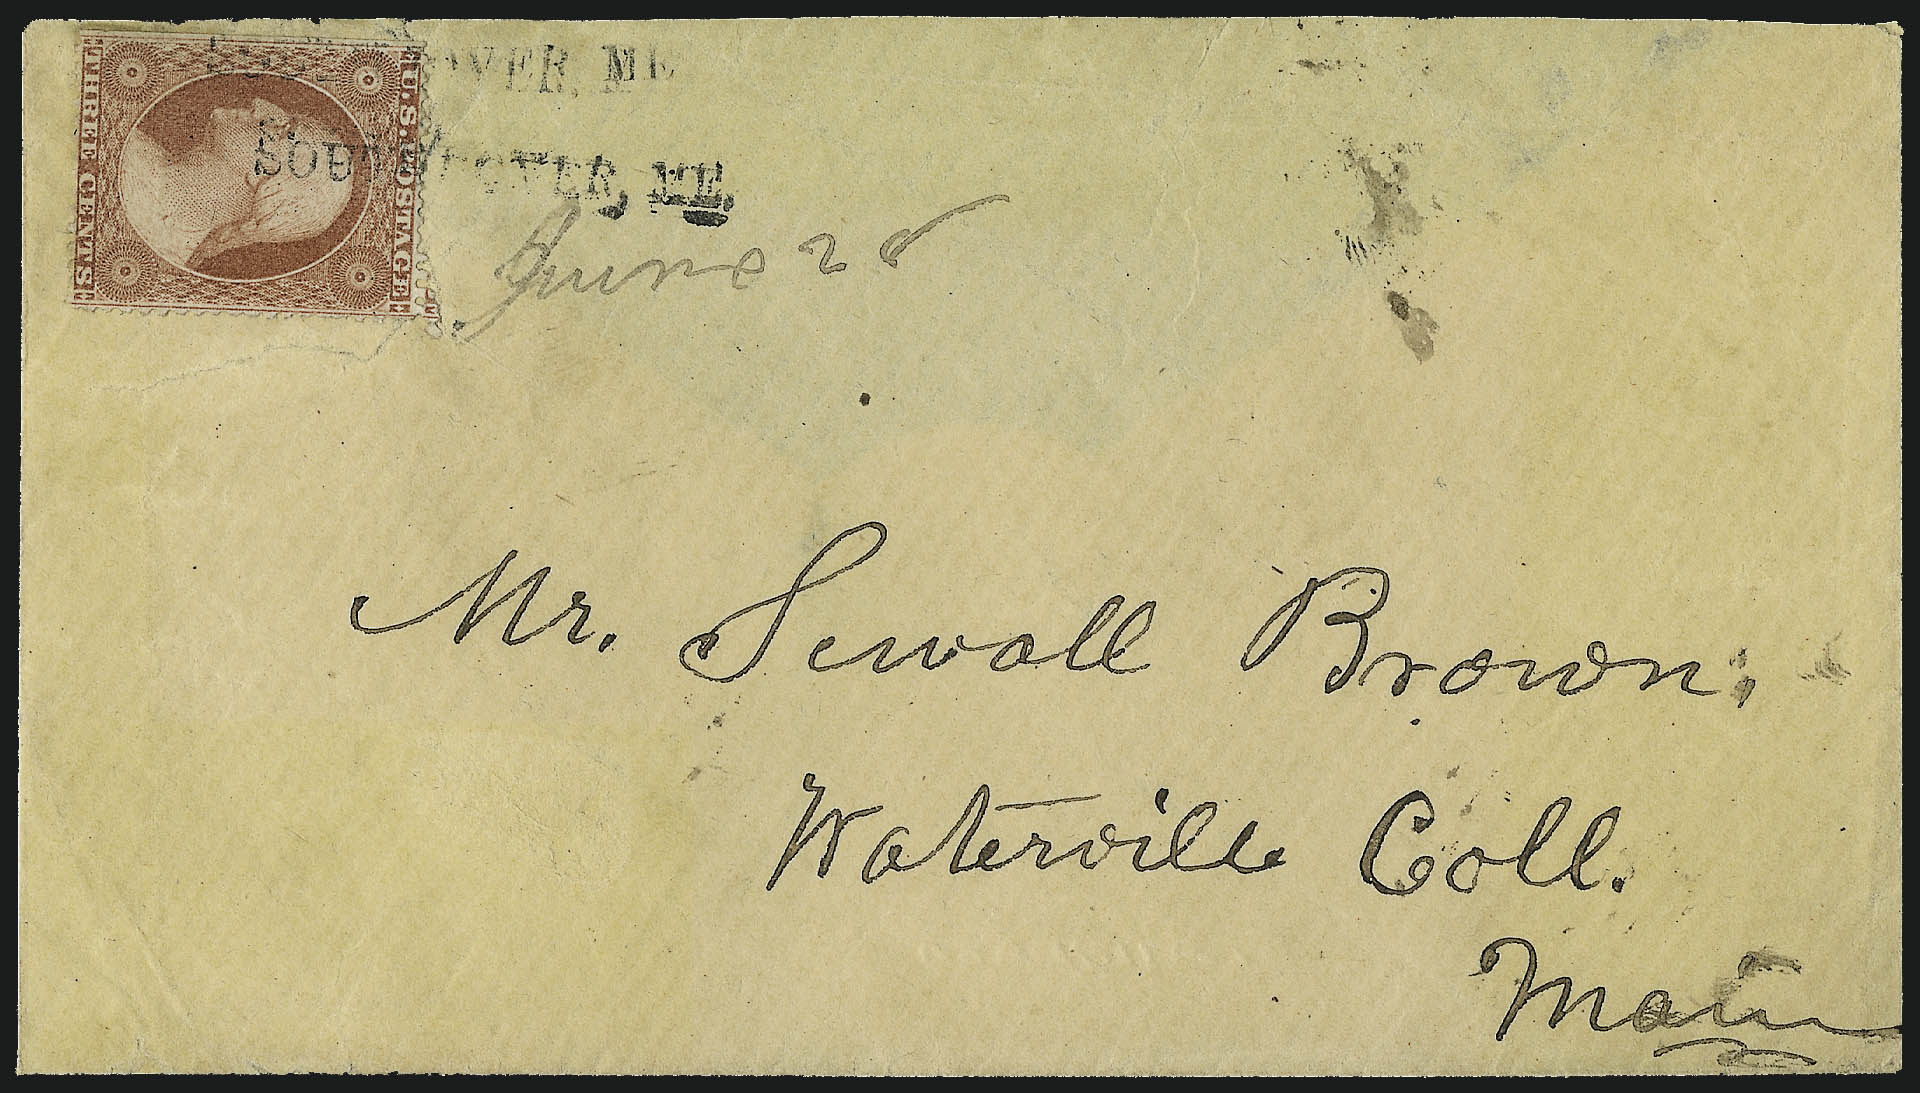 U.S. POSTAGE
THREE CENTS
OVER, ME
SOUTH DOVER, ME.
June 28
Mr. Sewall Brown,
Waterville Coll.
Maine